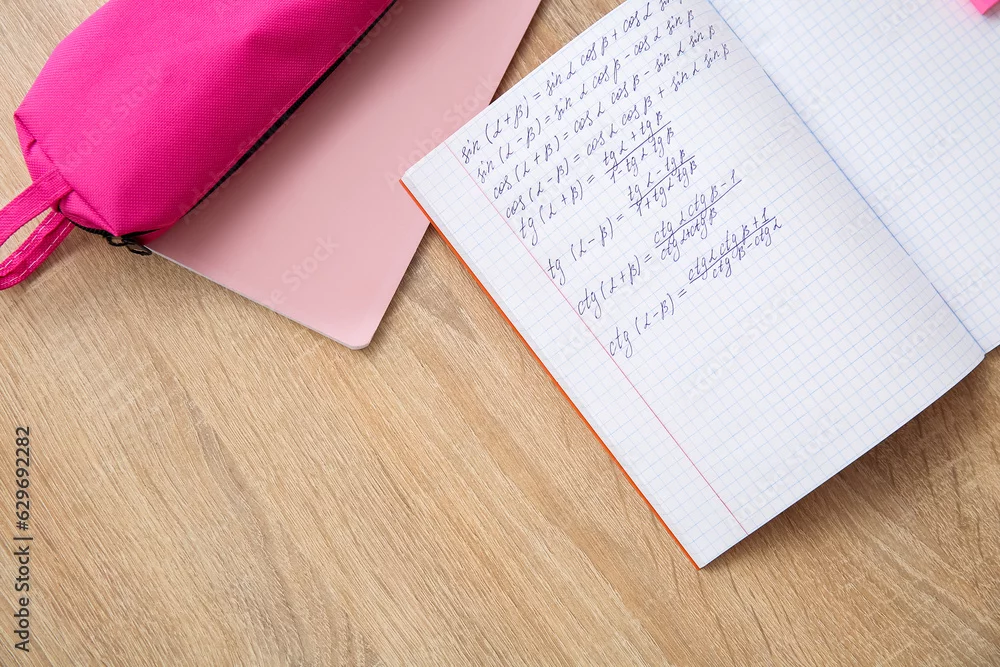 sin (α+β) = sin α cos β + cos α sin
sin (α-β) = sin α cos β - cos α sin β
cos (α+β) = cos α cos β - sin α sin β
cos (α-β) = cos α cos β + sin α sin β
tg (α+β) = (tg α + tg β) / (1 - tg α tg β)
tg (α-β) = (tg α - tg β) / (1 + tg α tg β)
ctg (α+β) = (ctg α ctg β - 1) / (ctg α + ctg β)
ctg (α-β) = (ctg α ctg β + 1) / (ctg β - ctg α)
Adobe Stock | #629692282